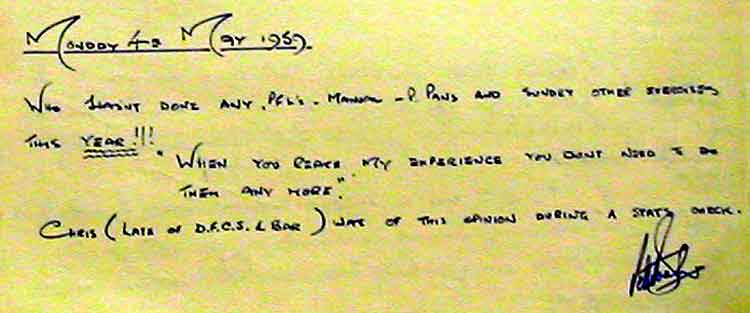 Monday 4th May 1959.
Who hasnt done any P.F.L's - Manual - P. Pans and sundry other exercises
this year!!!
"When you reach my experience you dont need to do
them any more".
Chris (Late of D.F.C.S. & Bar) was of this opinion during a stats check.